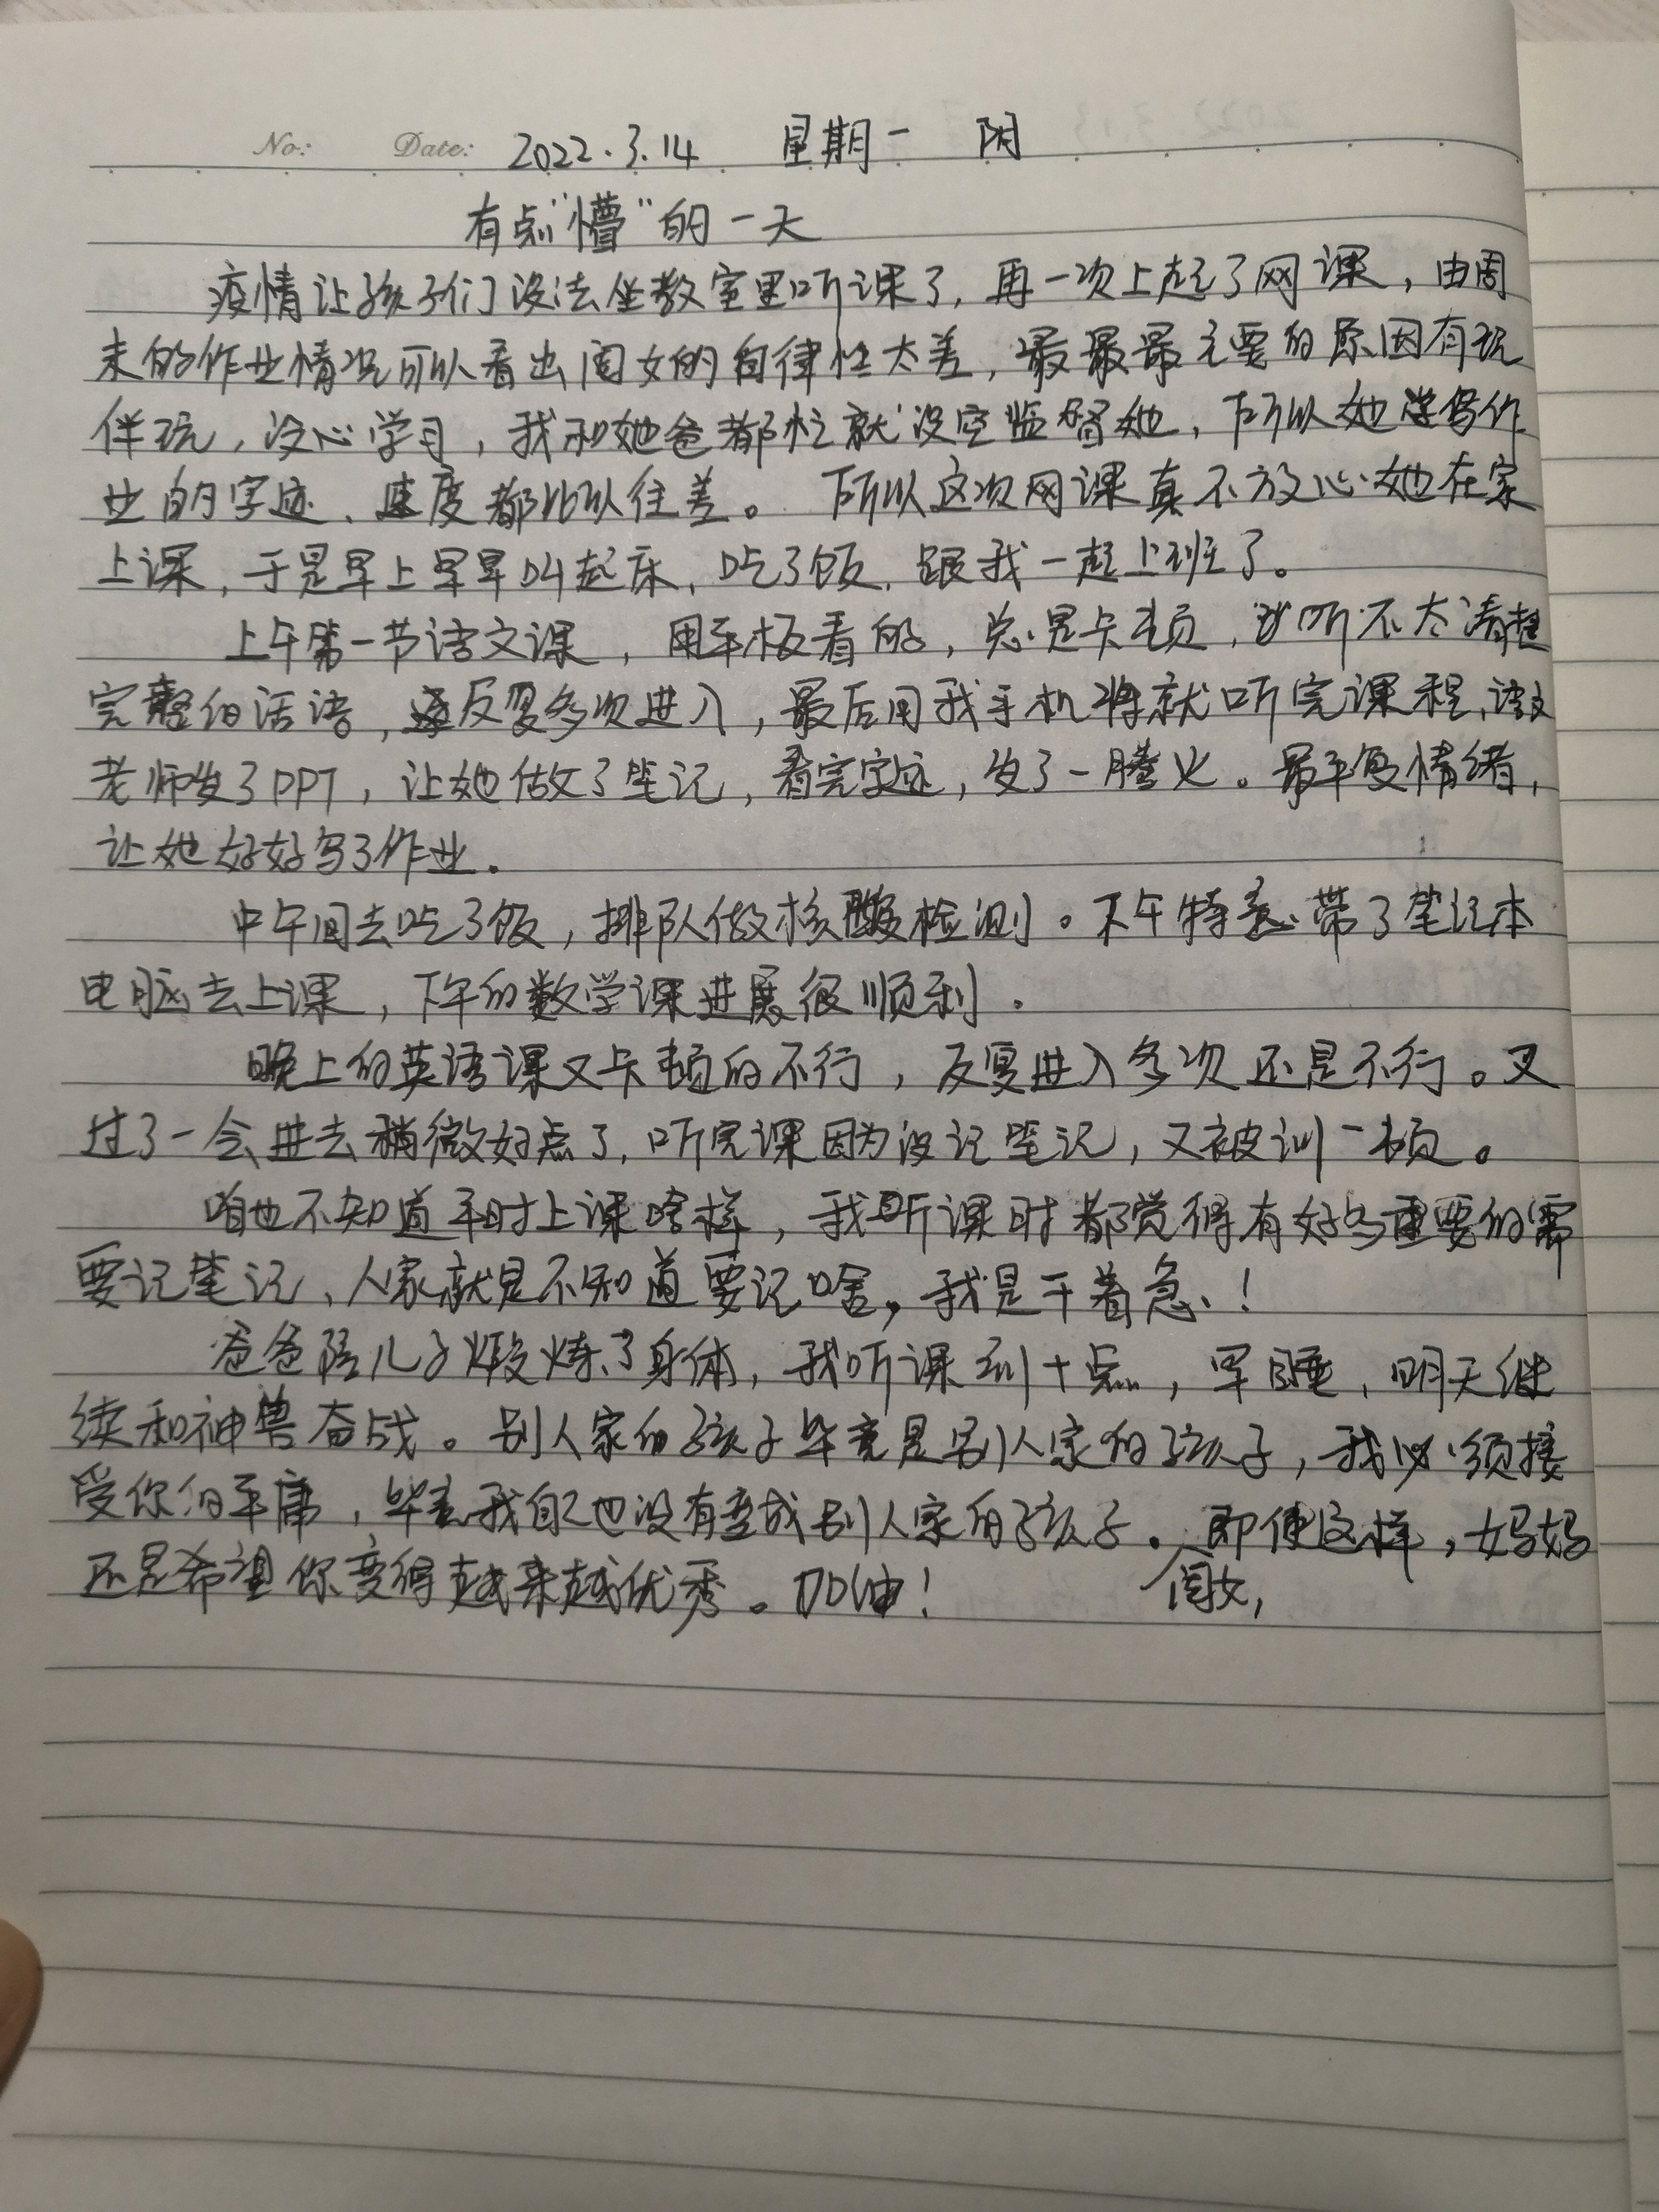 No: Date: 2022.3.14 星期一 阴
有点"懵"的一天
疫情让孩子们没法坐教室里听课了,再一次上起了网课,由周
末的作业情况可以看出闺女的自律性太差,最最最主要的原因有玩
伴玩,没心学习,我和她爸都忙就没空监督她,所以她写作
业的字迹、速度都比以往差。所以这次网课真不放心她在家
上课,于是早上早早叫起床,吃了饭,跟我一起上班了。
上午第一节语文课,用平板看的,总是卡顿,听不太清楚
完整的话语,反复多次进入,最后用我手机将就听完课程,语文
老师发了PPT,让她做了笔记,看完字迹,发了一腾火。最平复情绪,
让她好好写了作业.
中午间去吃了饭,排队做核酸检测。下午特意带了笔记本
电脑去上课,下午的数学课进展很顺利.
晚上的英语课又卡顿的不行,反复进入多次还是不行。又
过了一会进去稍微好点了,听完课因为没记笔记,又被训一顿。
咱也不知道平时上课啥样,我听课时都觉得有好多重要的需
要记笔记、人家就是不知道要记啥,我是干着急、!
爸爸陪儿子煅炼了身体,我听课到十点,早睡,明天继
续和神兽奋战。别人家的孩子毕竟是别人家的孩子,我必须接
受你的平庸,毕竟我自己也没有变成别人家的孩子。闺女,即使这样,妈妈
还是希望你变得越来越优秀。加油!